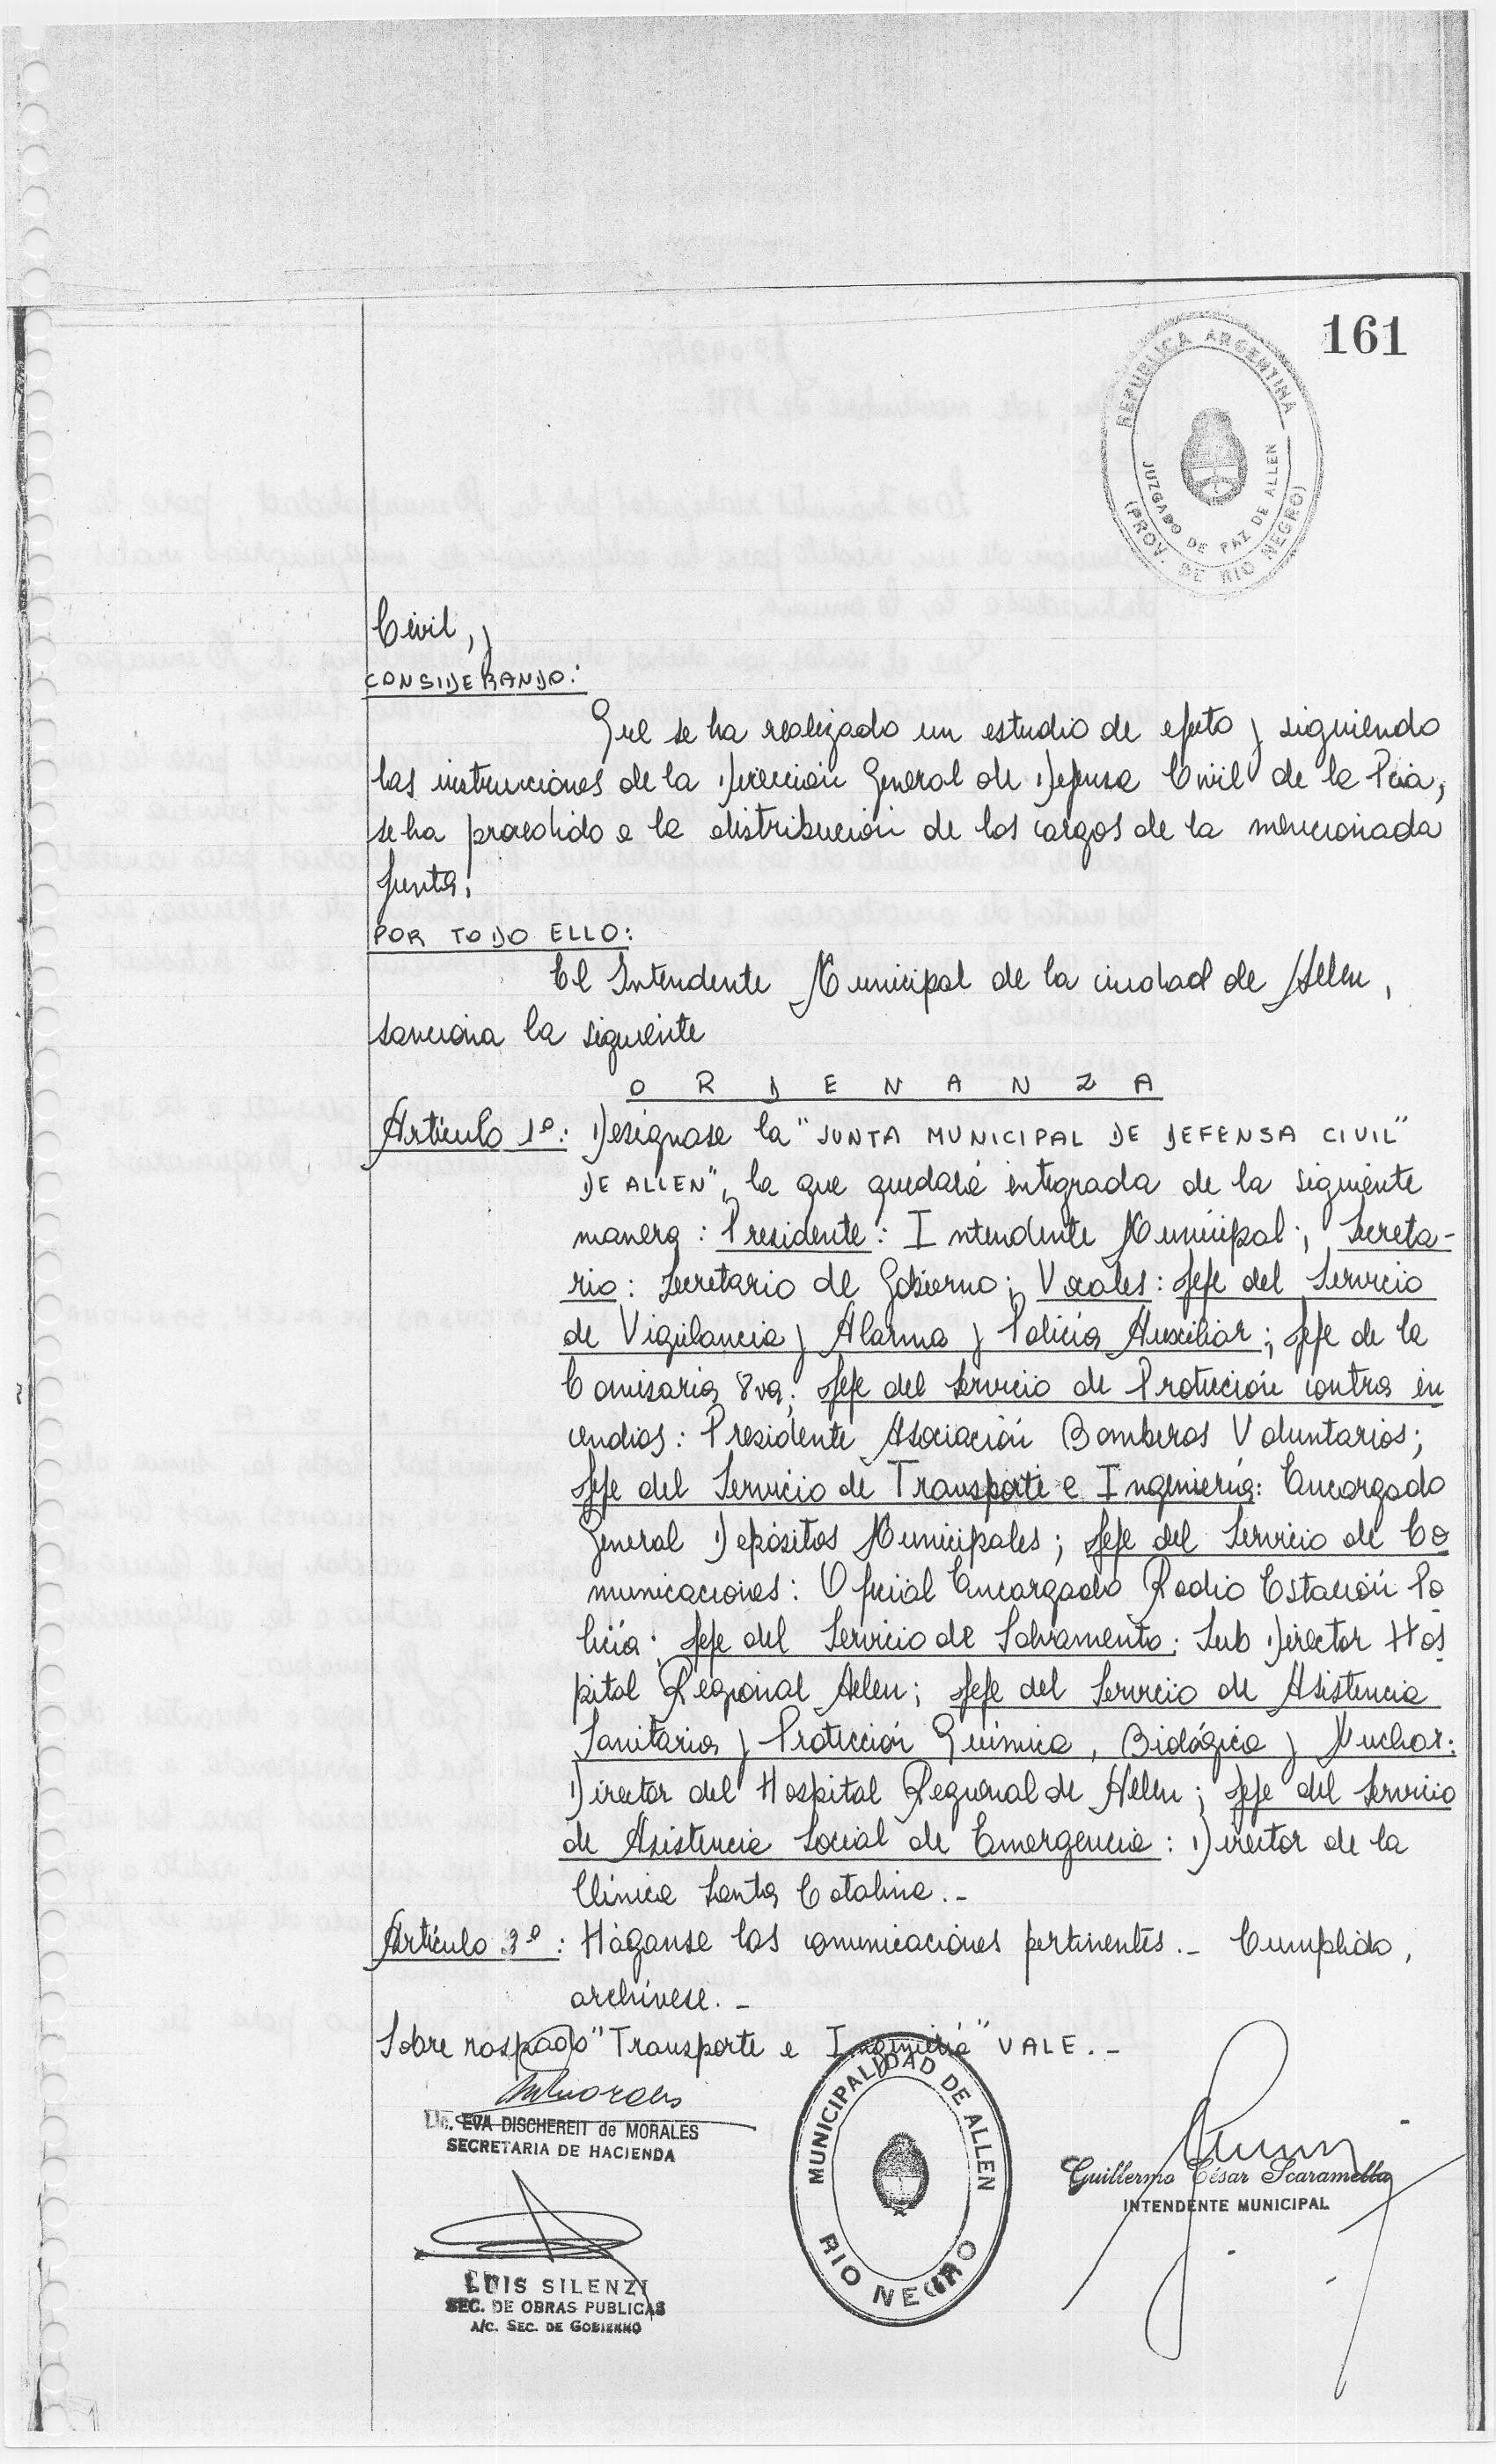 161
REPUBLICA ARGENTINA
JUZGADO DE PAZ DE ALLEN
(PROV. DE RIO NEGRO)
Civil, y
CONSIDERANDO:
Que se ha realizado un estudio de efecto y siguiendo
las instrucciones de la Dirección General de Defensa Civil de la Pcia,
se ha procedido a la distribución de los cargos de la mencionada
Junta;
POR TODO ELLO:
El Intendente Municipal de la ciudad de Allen,
sanciona la siguiente
O R D E N A N Z A
Artículo 1º: Desígnase la "JUNTA MUNICIPAL DE DEFENSA CIVIL"
DE ALLEN", la que quedará integrada de la siguiente
manera: Presidente: Intendente Municipal; Secreta-
rio: Secretario de Gobierno; Vocales: Jefe del Servicio
de Vigilancia y Alarma y Policía Auxiliar; Jefe de la
Comisaría 8va; Jefe del Servicio de Protección contra in
cendios: Presidente Asociación Bomberos Voluntarios;
Jefe del Servicio de Transporte e Ingeniería: Encargado
General Depósitos Municipales; Jefe del Servicio de Co
municaciones: Oficial Encargado Radio Estación Po
licía; Jefe del Servicio de Salvamento: Sub Director Hos
pital Regional Allen; Jefe del Servicio de Asistencia
Sanitaria y Protección Química, Biológica y Nuclear:
Director del Hospital Regional de Allen; Jefe del Servicio
de Asistencia Social de Emergencia: Director de la
Clínica Santa Catalina.-
Artículo 3º: Háganse las comunicaciones pertinentes.- Cumplido,
archívese.-
Sobre raspado "Transporte e Ingeniería" VALE.-
Lic. EVA DISCHEREIT de MORALES
SECRETARIA DE HACIENDA
MUNICIPALIDAD DE ALLEN
RIO NEGRO
Guillermo César Scaramella
INTENDENTE MUNICIPAL
LUIS SILENZI
SEC. DE OBRAS PUBLICAS
A/C. SEC. DE GOBIERNO